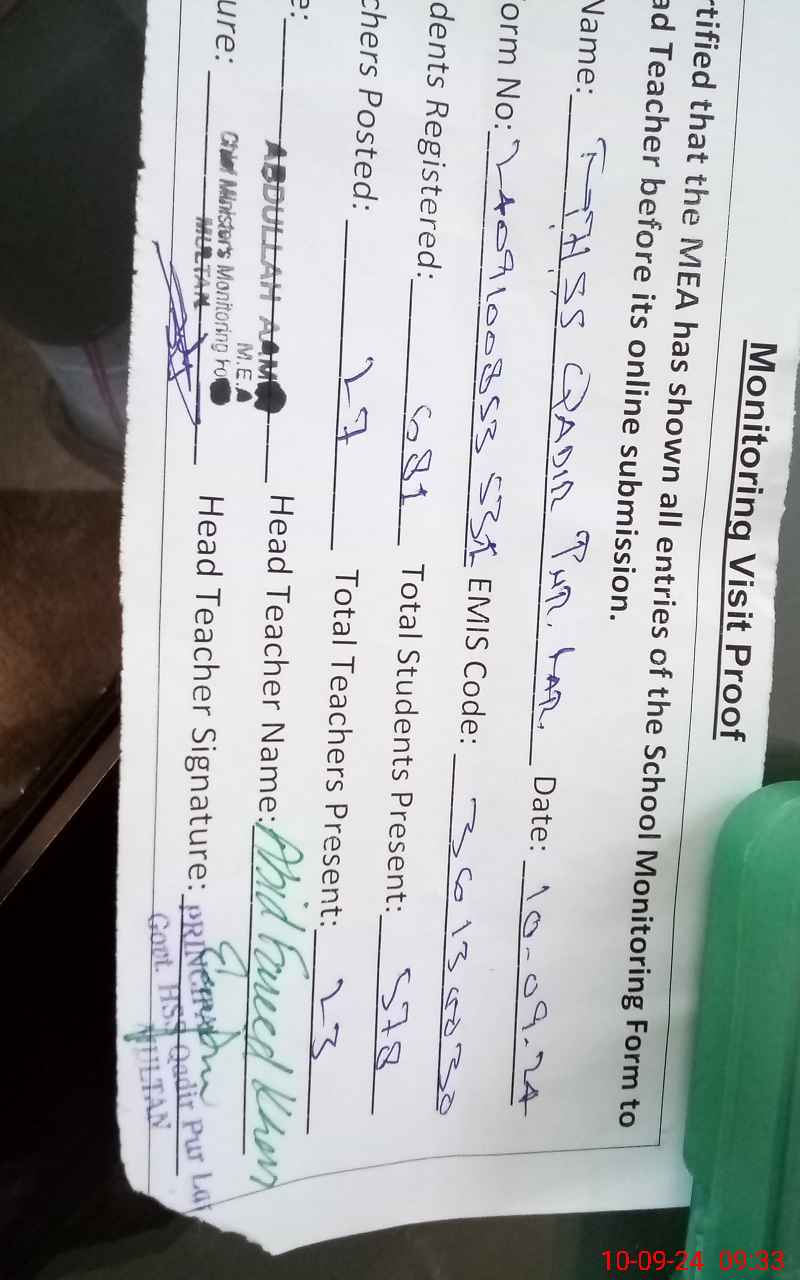 Monitoring Visit Proof
rtified that the MEA has shown all entries of the School Monitoring Form to
ad Teacher before its online submission.
Name: GHSS QADIR PUR. RAN. Date: 10-09-24
orm No: 2409100853 531 EMIS Code:
dents Registered: 681 Total Students Present: 578
chers Posted: 27 Total Teachers Present: 23
e: ABDULLAH Head Teacher Name: Abid Fareed Khan
M.E.A
ure: Chief Minister's Monitoring Fo Head Teacher Signature: PRINCIPAL
MULTAN Govt. HSS Qadir Pur
MULTAN
10-09-24 09:33